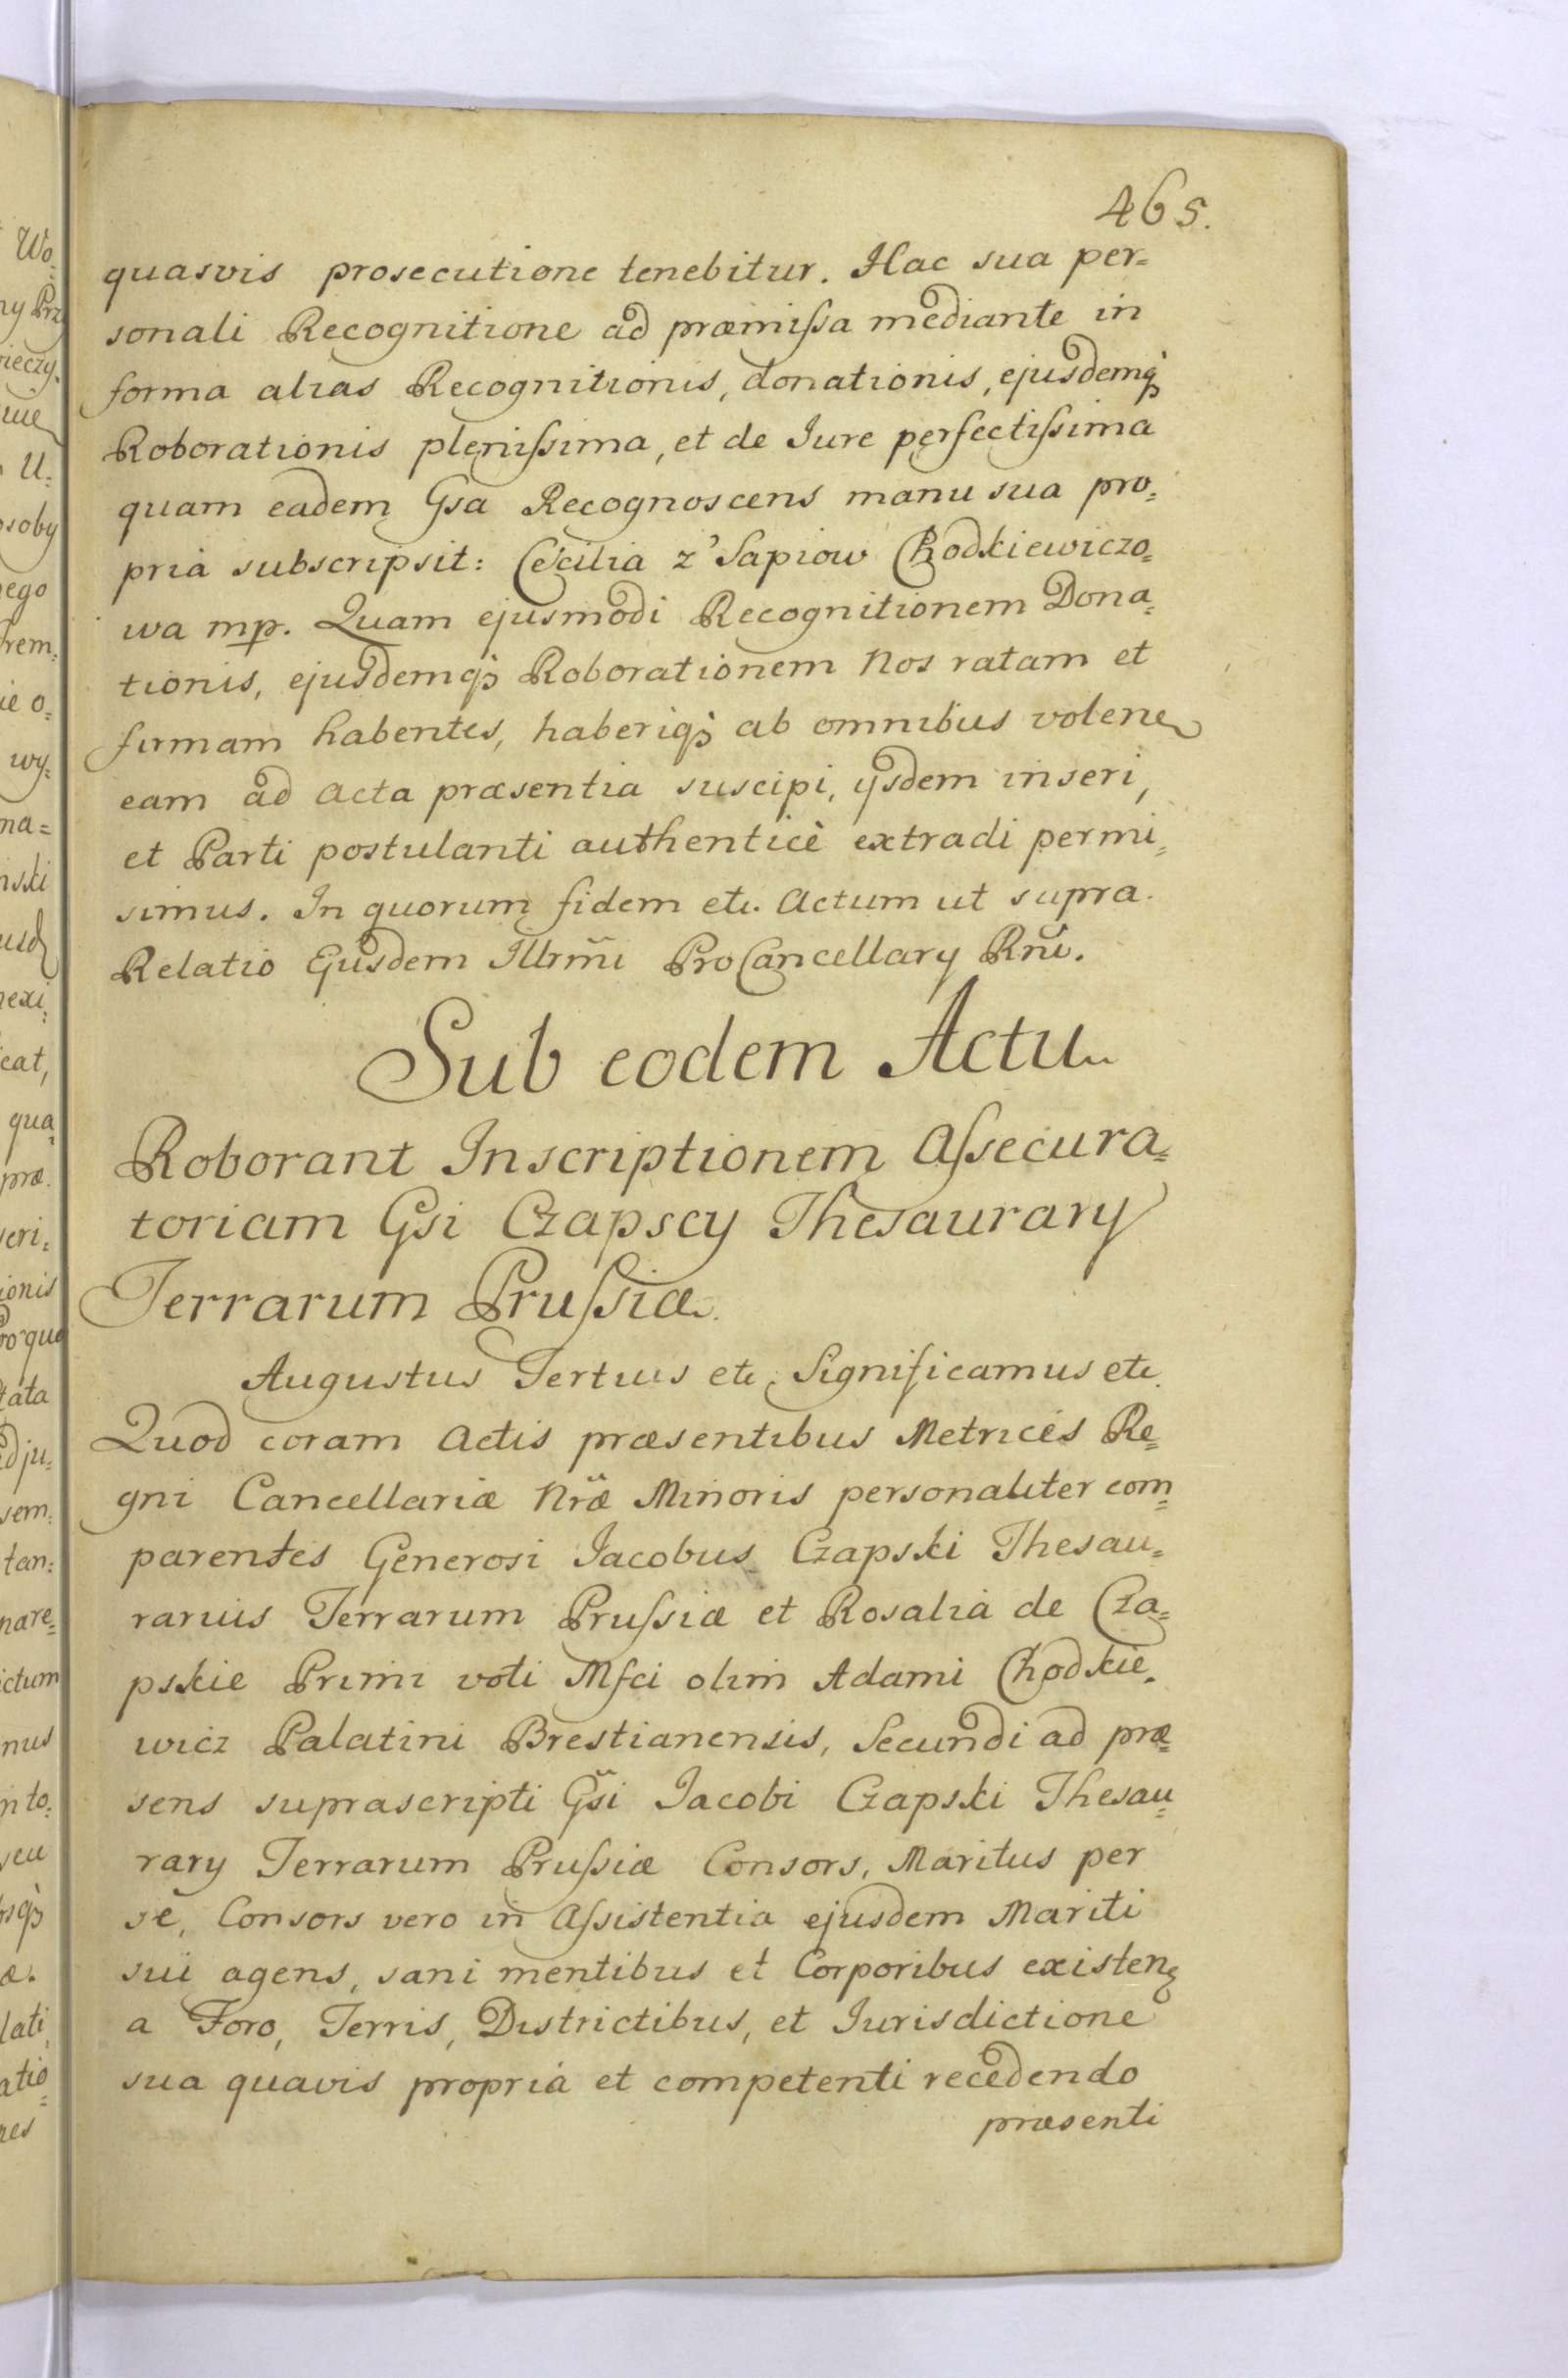 465.
quasvis prosecutione tenebitur. Hac sua per=
sonali Recognitione ad præmissa mediante in
forma alias Recognitionis, donationis, ejusdemq́;
Roborationis plenissima, et de Jure perfectissima
quam eadem Gsa Recognoscens manu sua pro=
pria subscripsit: Cecilia z' Sapiow Chodkiewiczo=
wa mp. Quam ejusmodi Recognitionem Dona=
tionis, ejusdemq́; Roborationem Nos ratam et
firmam habentes, haberiq́; ab omnibus volene
eam ad Acta præsentia suscipi, ijsdem inseri,
et Parti postulanti authenticè extradi permi=
simus. In quorum fidem etc. Actum ut supra.
Relatio Ejusdem Illrm̃i ProCancellary Rñi.
Sub eodem Actu
Roborant Inscriptionem Assecura=
toriam Gsi Czapscy Thesaurary
Terrarum Prussiæ.
Augustus Tertius etc. Significamus etc.
Quod coram Actis præsentibus Metrices Re=
gni Cancellariæ Nr̃æ Minoris personaliter com=
parentes Generosi Jacobus Czapski Thesau=
rarius Terrarum Prussiæ et Rosalia de Cza=
pskie Primi voti Mfci olim Adami Chodkie=
wicz Palatini Brestianensis, Secundi ad præ=
sens suprascripti Gs̃i Jacobi Czapski Thesau=
rary Terrarum Prussiæ Consors, Maritus per
se, Consors vero in Assistentia ejusdem Mariti
sui agens, sani mentibus et Corporibus existen
a Foro, Terris, Districtibus, et Jurisdictione
sua quavis propria et competenti recedendo
præsenti